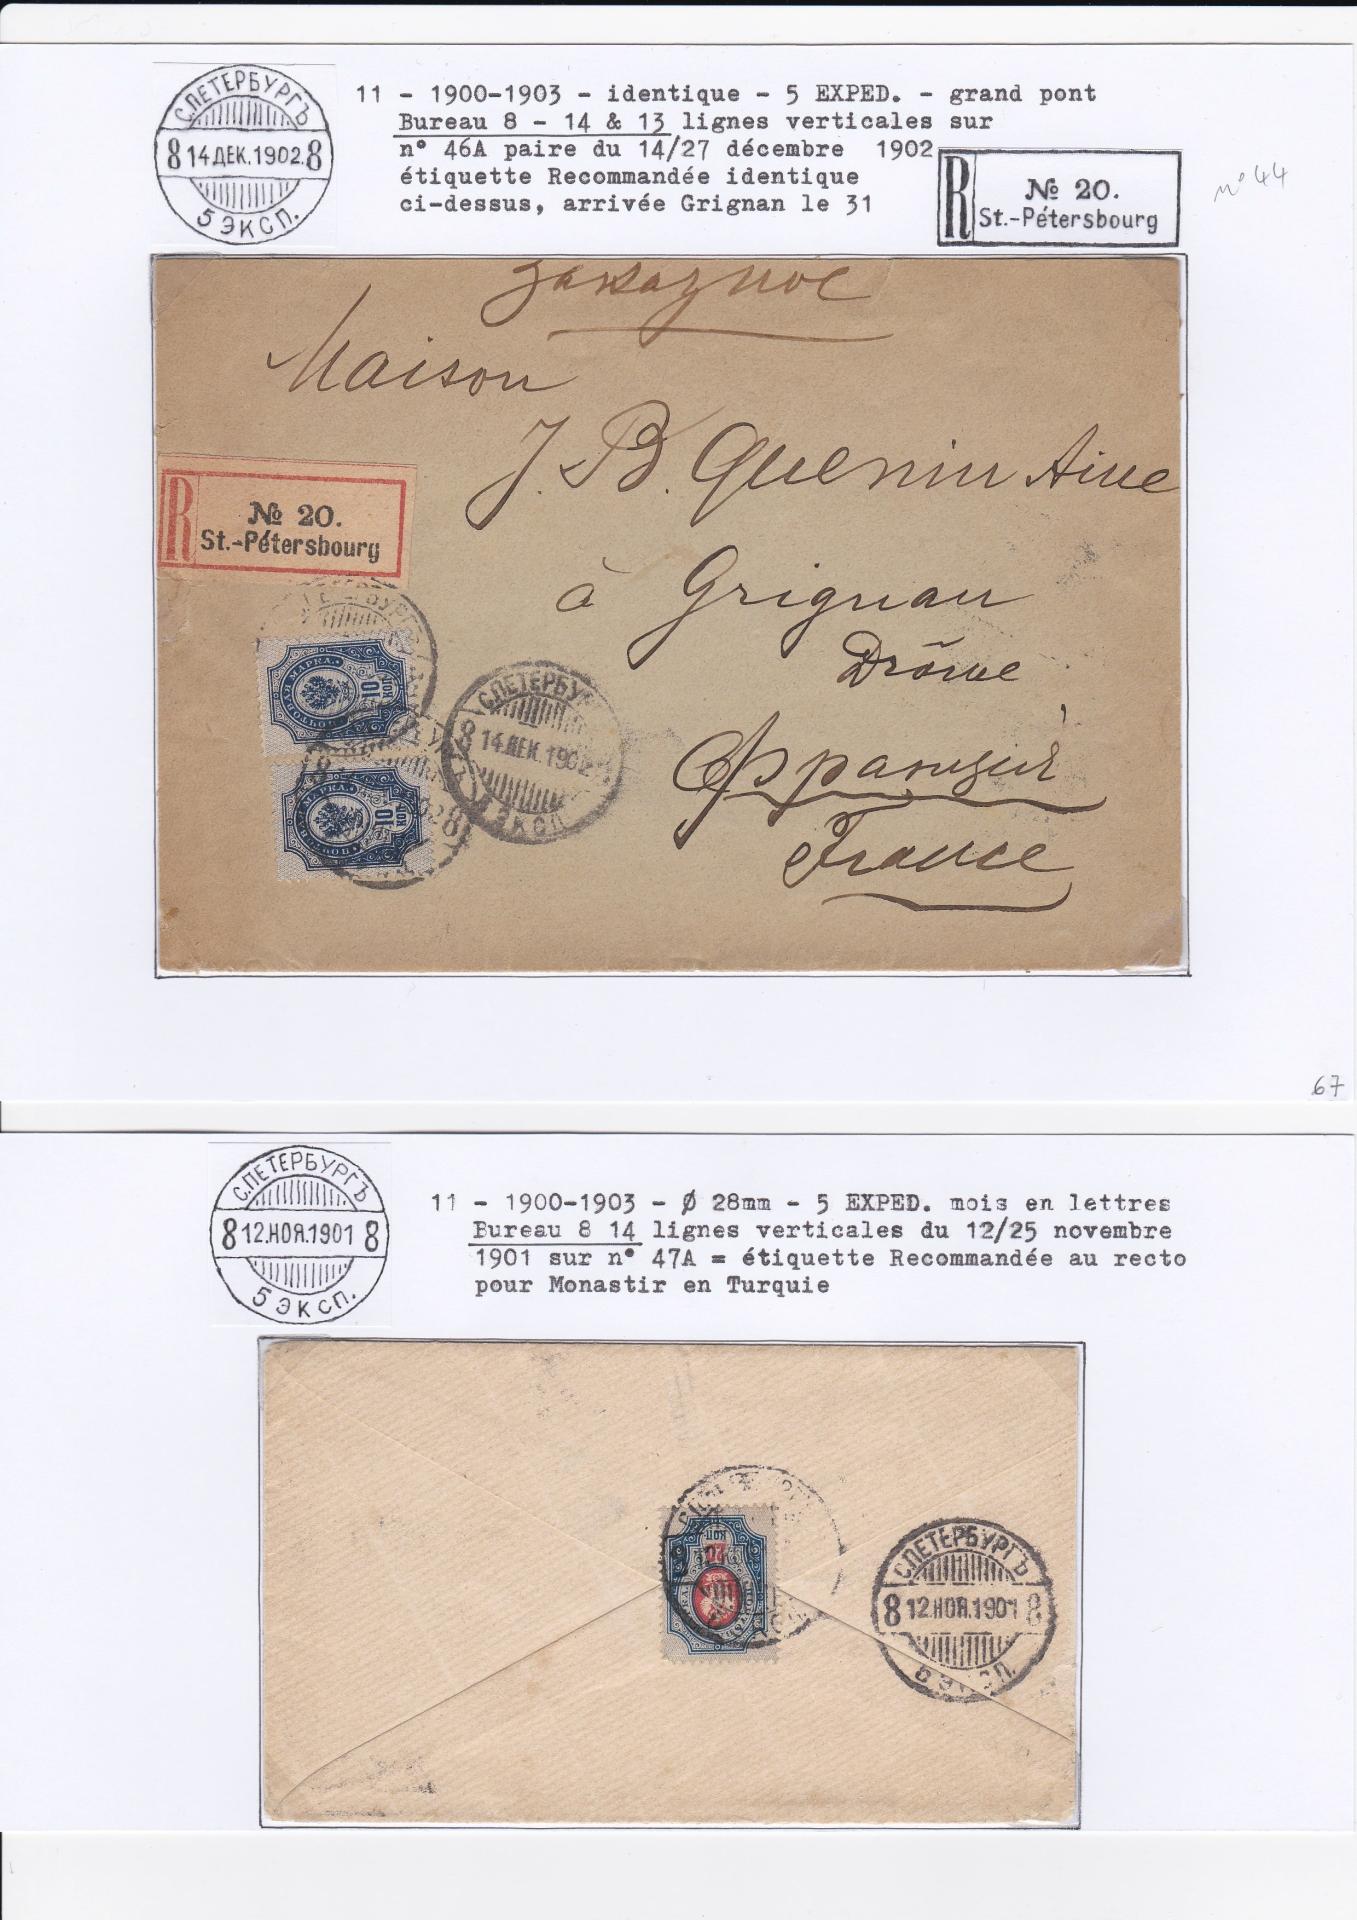 С.ПЕТЕРБУРГЪ
8 14 ДЕК. 1902. 8
5 ЭКСП.
11 - 1900-1903 - identique - 5 EXPED. - grand pont
Bureau 8 - 14 & 13 lignes verticales sur
n° 46A paire du 14/27 décembre 1902
étiquette Recommandée identique
ci-dessus, arrivée Grignan le 31
R № 20.
St.-Pétersbourg
n° 44
Заказное
Maison
J. B. Quenin Aine
à Grignan
Drôme
Франція
France
R № 20.
St.-Pétersbourg
ПОЧТОВАЯ МАРКА.
10 КОП.
МАРКА.
10 КОП.
С.ПЕТЕРБУ
8 14.ДЕК.1902
ЭКСП
67
С.ПЕТЕРБУРГЪ
8 12.НОЯ.1901 8
5 ЭКСП.
11 - 1900-1903 - Ø 28mm - 5 EXPED. mois en lettres
Bureau 8 14 lignes verticales du 12/25 novembre
1901 sur n° 47A = étiquette Recommandée au recto
pour Monastir en Turquie
С.ПЕТЕРБУРГЪ
8 12.НОЯ.1901 8